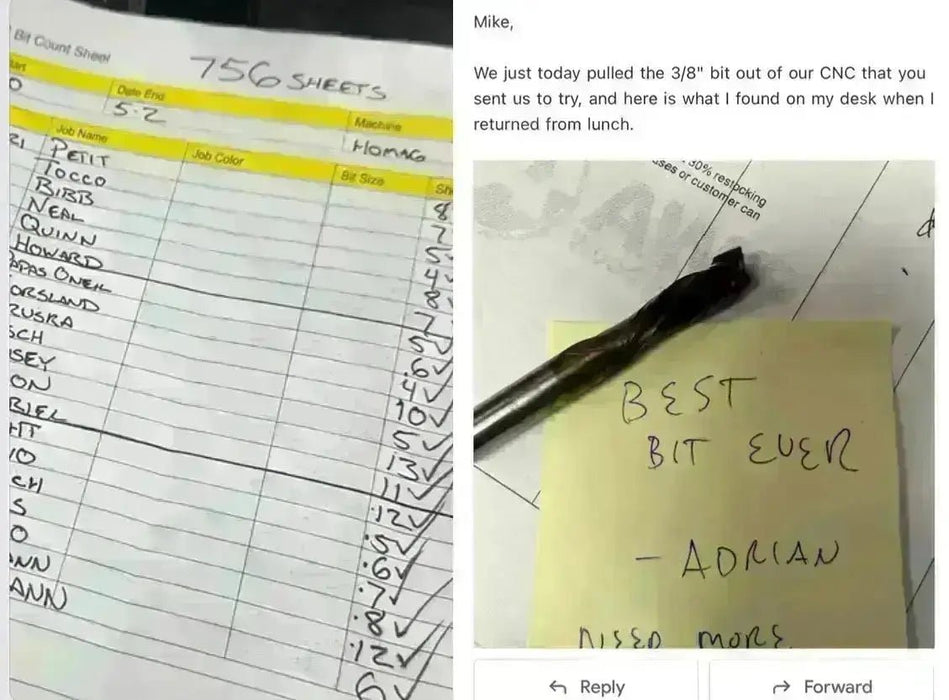 Bit Count Sheet
756 SHEETS
Date End
5.2
Machine
HOMAG
Job Name
Job Color
Bit Size
PETIT
8
TOCCO
7
BIBB
5
NEAL
4
QUINN
8
HOWARD
7
APAS ONEIL
5
ORSLAND
6
ZUSRA
4
SCH
10
SEY
5
ON
13
BIEL
11
HT
12
IO
5
CH
6
S
7
O
8
ANN
12
ANN
6
Mike,
We just today pulled the 3/8" bit out of our CNC that you
sent us to try, and here is what I found on my desk when I
returned from lunch.
30% restocking
uses or customer can
BEST
BIT EVER
- ADRIAN
NEED MORE
Reply
Forward